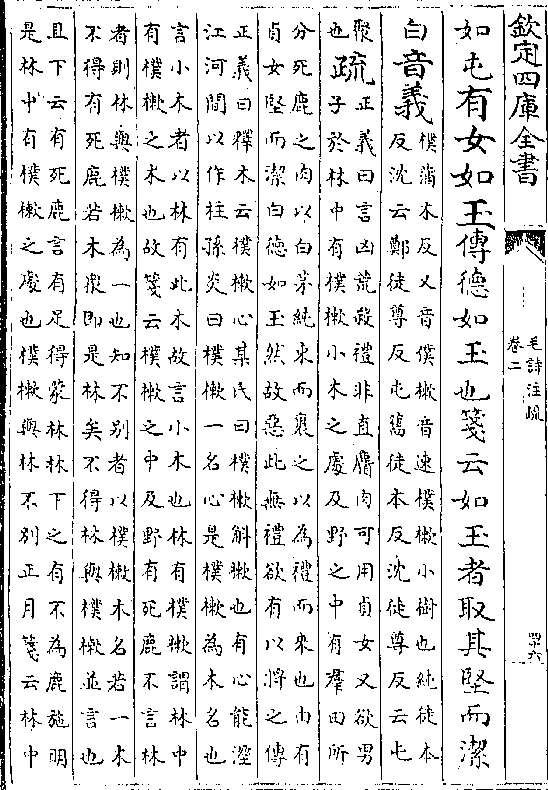 欽定四庫全書
毛詩注疏
卷二
罕六
如屯有女如玉傳德如玉也箋云如玉者取其堅而潔
白音義
樸蒲木反又音僕樕音速樸樕小樹也純徒本
反沈云鄭徒尊反屯舊徒本反沈徒尊反云屯
聚
也
疏
正義曰言凶荒殺禮非直麕肉可用貞女又欲男
子於林中有樸樕小木之處及野之中有羣田所
分死鹿之肉以白茅純束而裹之以為禮而來也由有
貞女堅而潔白德如玉然故惡此無禮欲有以將之傳
正義曰釋木云樸樕心某氏曰樸樕斛樕也有心能溼
江河間以作柱孫炎曰樸樕一名心是樸樕為木名也
言小木者以林有此木故言小木也林有樸樕謂林中
有樸樕之木也故箋云樸樕之中及野有死鹿不言林
者則林與樸樕為一也知不别者以樸樕木名若一木
不得有死鹿若木衆即是林矣不得林與樸樕並言也
且下云有死鹿言有足得蒙林林下之有不為鹿施明
是林中有樸樕之處也樸樕與林不别正月箋云林中